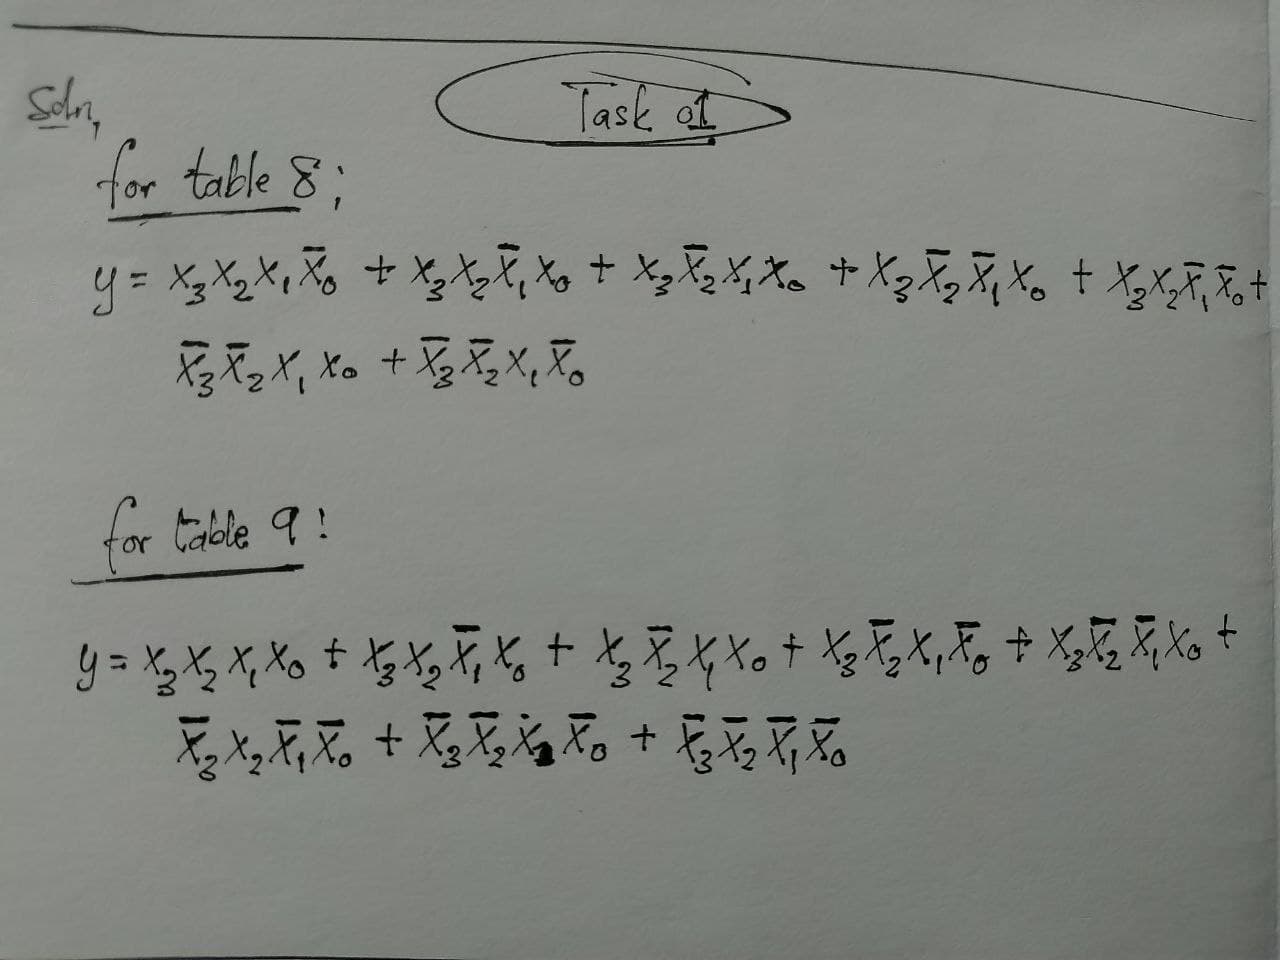 Task 01
Soln,
for table 8;
y = x₃x₂x₁x̄₀ + x₃x₂x̄₁x₀ + x₃x̄₂x₁x₀ + x₃x̄₂x̄₁x₀ + x₃x₂x̄₁x̄₀ +
x̄₃x̄₂x₁x₀ + x̄₃x̄₂x₁x̄₀
for table 9:
y = x₃x₂x₁x₀ + x₃x₂x̄₁x₀ + x₃x̄₂x₁x₀ + x₃x̄₂x₁x̄₀ + x₃x̄₂x̄₁x₀ +
x̄₃x₂x̄₁x̄₀ + x̄₃x̄₂x₁x̄₀ + x̄₃x̄₂x̄₁x̄₀